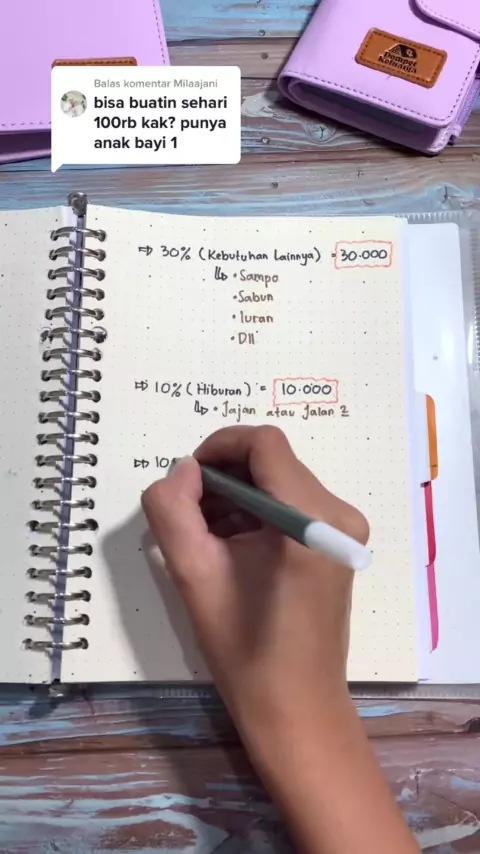 Dompet
Keluarga
Balas komentar Milaajani
bisa buatin sehari
100rb kak? punya
anak bayi 1
⇨ 30% (Kebutuhan Lainnya) = 30.000
↳ • Sampo
• Sabun
• Iuran
• Dll
⇨ 10% (Hiburan) = 10.000
↳ • Jajan atau Jalan 2
⇨ 10